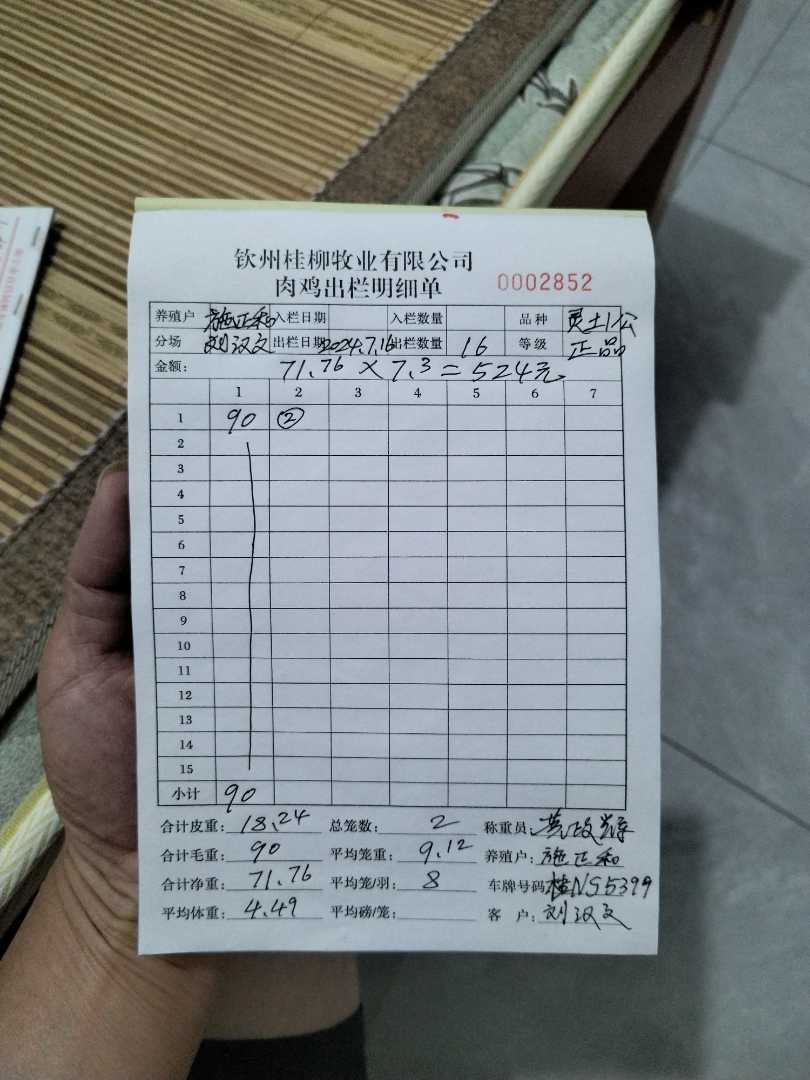 钦州桂柳牧业有限公司
肉鸡出栏明细单 0002852
养殖户 施正和 入栏日期 入栏数量 品种 灵土1公
分场 刘汉文 出栏日期 2024.7.16 出栏数量 16 等级 正品
金额: 71.76 × 7.3 = 524元
1 2 3 4 5 6 7
1 90 ②
2
3
4
5
6
7
8
9
10
11
12
13
14
15
小计 90
合计皮重: 18.24 总笼数: 2 称重员:
合计毛重: 90 平均笼重: 9.12 养殖户: 施正和
合计净重: 71.76 平均笼/羽: 8 车牌号码 桂NS5399
平均体重: 4.49 平均磅/笼: 客户: 刘汉文